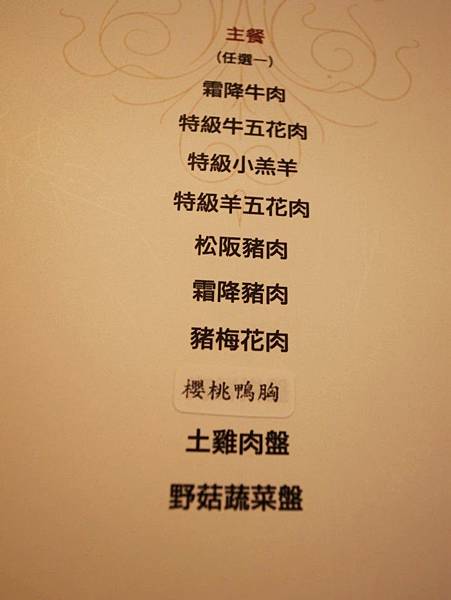 主餐
(任選一)
霜降牛肉
特級牛五花肉
特級小羔羊
特級羊五花肉
松阪豬肉
霜降豬肉
豬梅花肉
櫻桃鴨胸
土雞肉盤
野菇蔬菜盤